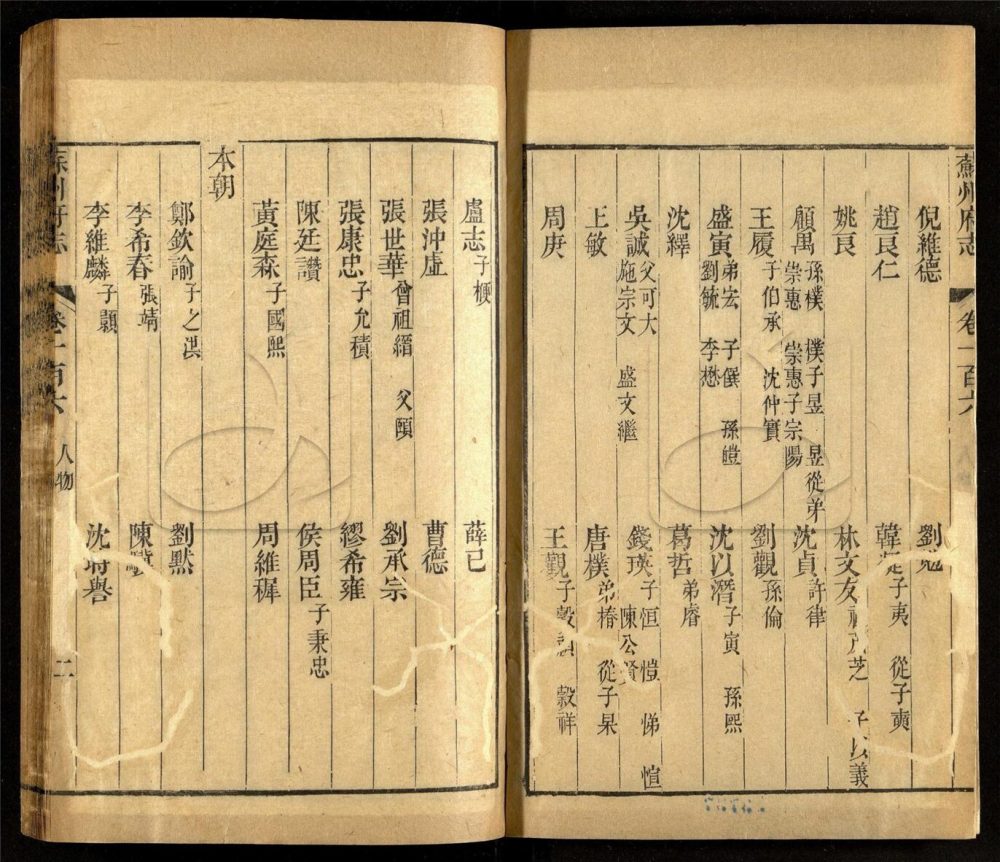 蘇州府志 卷一百六
倪維德 劉勉
趙良仁 韓凝 子夷 從子奭
姚良 林文友 芝 子 義
顧禺 孫樸 樸子昱 昱從弟
崇惠 崇惠子宗陽 沈貞 許律
王履 子伯承 沈仲實 劉觀 孫倫
盛寅 弟宏 子僎 孫皚
劉毓 李懋 沈以潛 子寅 孫熙
沈繹 葛哲 弟睿
吳誠 父可大 錢瑛 子恒 愷 悌 愃
施宗文 盛文繼 陳公賢
王敏 唐樸 弟椿 從子杲
周庚 王觀 子穀 穀祥
盧志 子梗 薛已
張沖虛 曹德
張世華 曾祖縉 父頤 劉承宗
張康忠 子允積 繆希雍
陳廷讚 侯周臣 子秉忠
黃庭森 子國熙 周維穉
本朝
鄭欽諭 子之洪 劉默
李希春 張靖 陳
李維麟 子顥 沈時譽
蘇州府志 卷一百六 人物 二